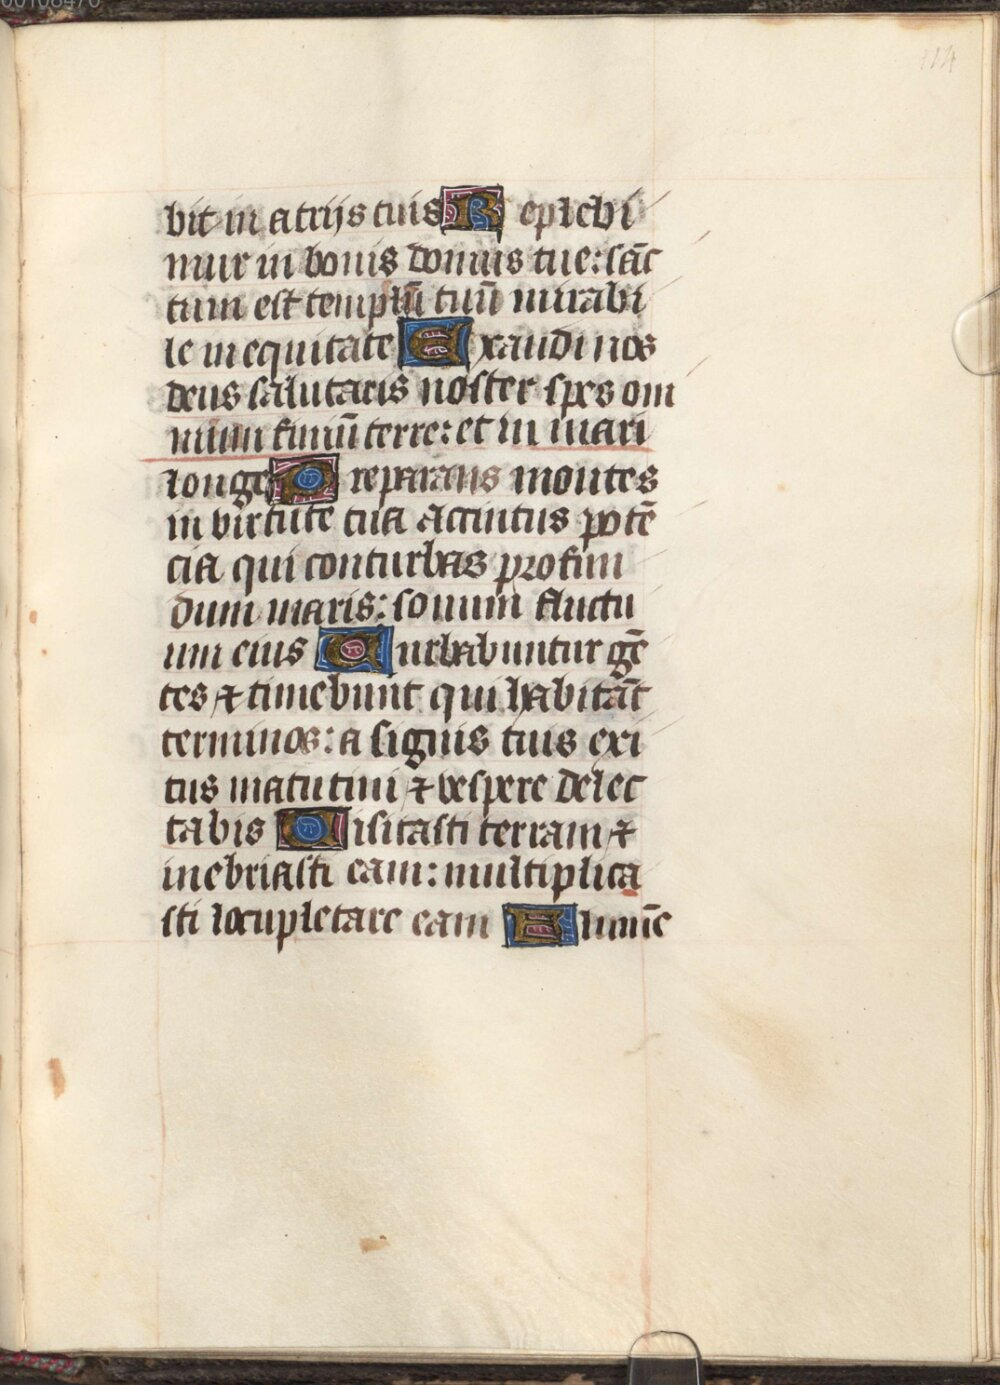 00108470
114
bit in atrijs tuis Replebi
mur in bonis domus tue: sāc
tum est templū tuū mirabi
le in equitate Exaudi nos
deus salutaris noster spes om
nium finiū terre: et in mari
longe Preparans montes
in virtute tua accintus potē
cia qui conturbas profun
dum maris: sonum fluctu
um eius Turbabuntur gē
tes ⁊ timebunt qui habitāt
terminos: a signis tuis exi
tus matutini ⁊ vespere delec
tabis Uisitasti terram ⁊
inebriasti eam: multiplica
sti locupletare eam Flumē